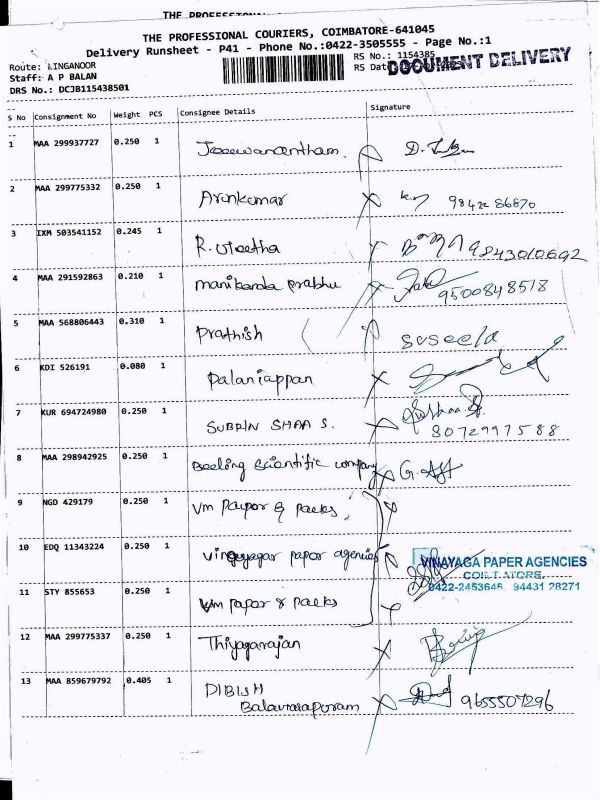 THE PROFESSIONAL COURIERS, COIMBATORE-641045
Delivery Runsheet - P41 - Phone No.:0422-3505555 - Page No.:1
Route: LINGANOOR
RS No.: 1154385
Staff: A P BALAN
RS Date
DOCUMENT DELIVERY
DRS No.: DCJB115438501
S No Consignment No Weight PCS Consignee Details Signature
1 MAA 299937727 0.250 1
2 MAA 299775332 0.250 1 Arunkumar 98422 86870
3 IXM 503541152 0.245 1 R. 9843010692
4 MAA 291592863 0.210 1 manikanda prabhu 9500848518
5 MAA 568806443 0.310 1 Prathish suseela
6 KDI 526191 0.080 1 Palaniappan
7 KUR 694724980 0.250 1 SUBRIN SHAA S. 8072997588
8 MAA 298942925 0.250 1 Scientific company
9 NGD 429179 0.250 1 Vm Paper & packs,
10 EDQ 11343224 0.250 1 paper agencies
VINAYAGA PAPER AGENCIES
COIMBATORE.
0422-2453646, 94431 28271
11 STY 855653 0.250 1 Vm paper & packs
12 MAA 299775337 0.250 1 Thiyagarajan
13 MAA 859679792 0.405 1 DIBISH
9655507296